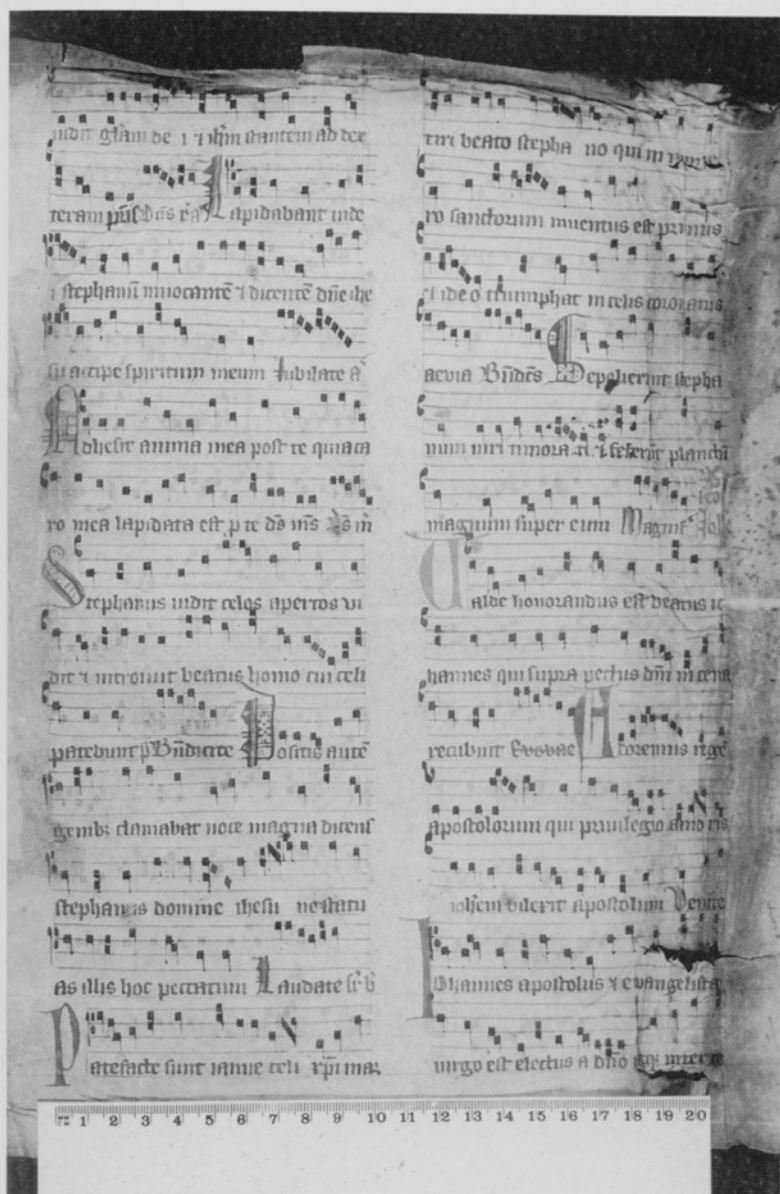 uidit gl̄am de i ⁊ ih̄m stantem ad dex
teram Lapidabant iude
i stephanū inuocantē ⁊ dicentē dn̄e ihe
su accipe spiritum meum Iubilate
Adhesit anima mea post te quia ca
ro mea lapidata est p te ds̄ ms̄
Stephanus uidit celos apertos vi
dit ⁊ introiuit beatus homo cui celi
patebunt Bn̄dicite Positis autē
genibꝫ clamabat uoce magna dicens
stephanus domine ihesu ne statu
as illis hoc peccatum Laudate
Patefacte sunt ianue celi xp̄i mar
tiri beato stepha no qui in nume
ro sanctorum inuentus est primus
et ide o triumphat in celis coronatus
aevia Bn̄dc̄s Sepelierunt stepha
num uiri timora ti ⁊ fecerūt planctū
magnum super eum Magnif̄
Valde honorandus est beatus io
hannes qui supra pectus dn̄i in cena
recubuit Evovae Adoremus regē
apostolorum qui priuilegio amo ris
ioh̄em dilexit apostolum Venite
Iohannes apostolus ⁊ evangelista
uirgo est electus a dn̄o inter ce
1 2 3 4 5 6 7 8 9 10 11 12 13 14 15 16 17 18 19 20